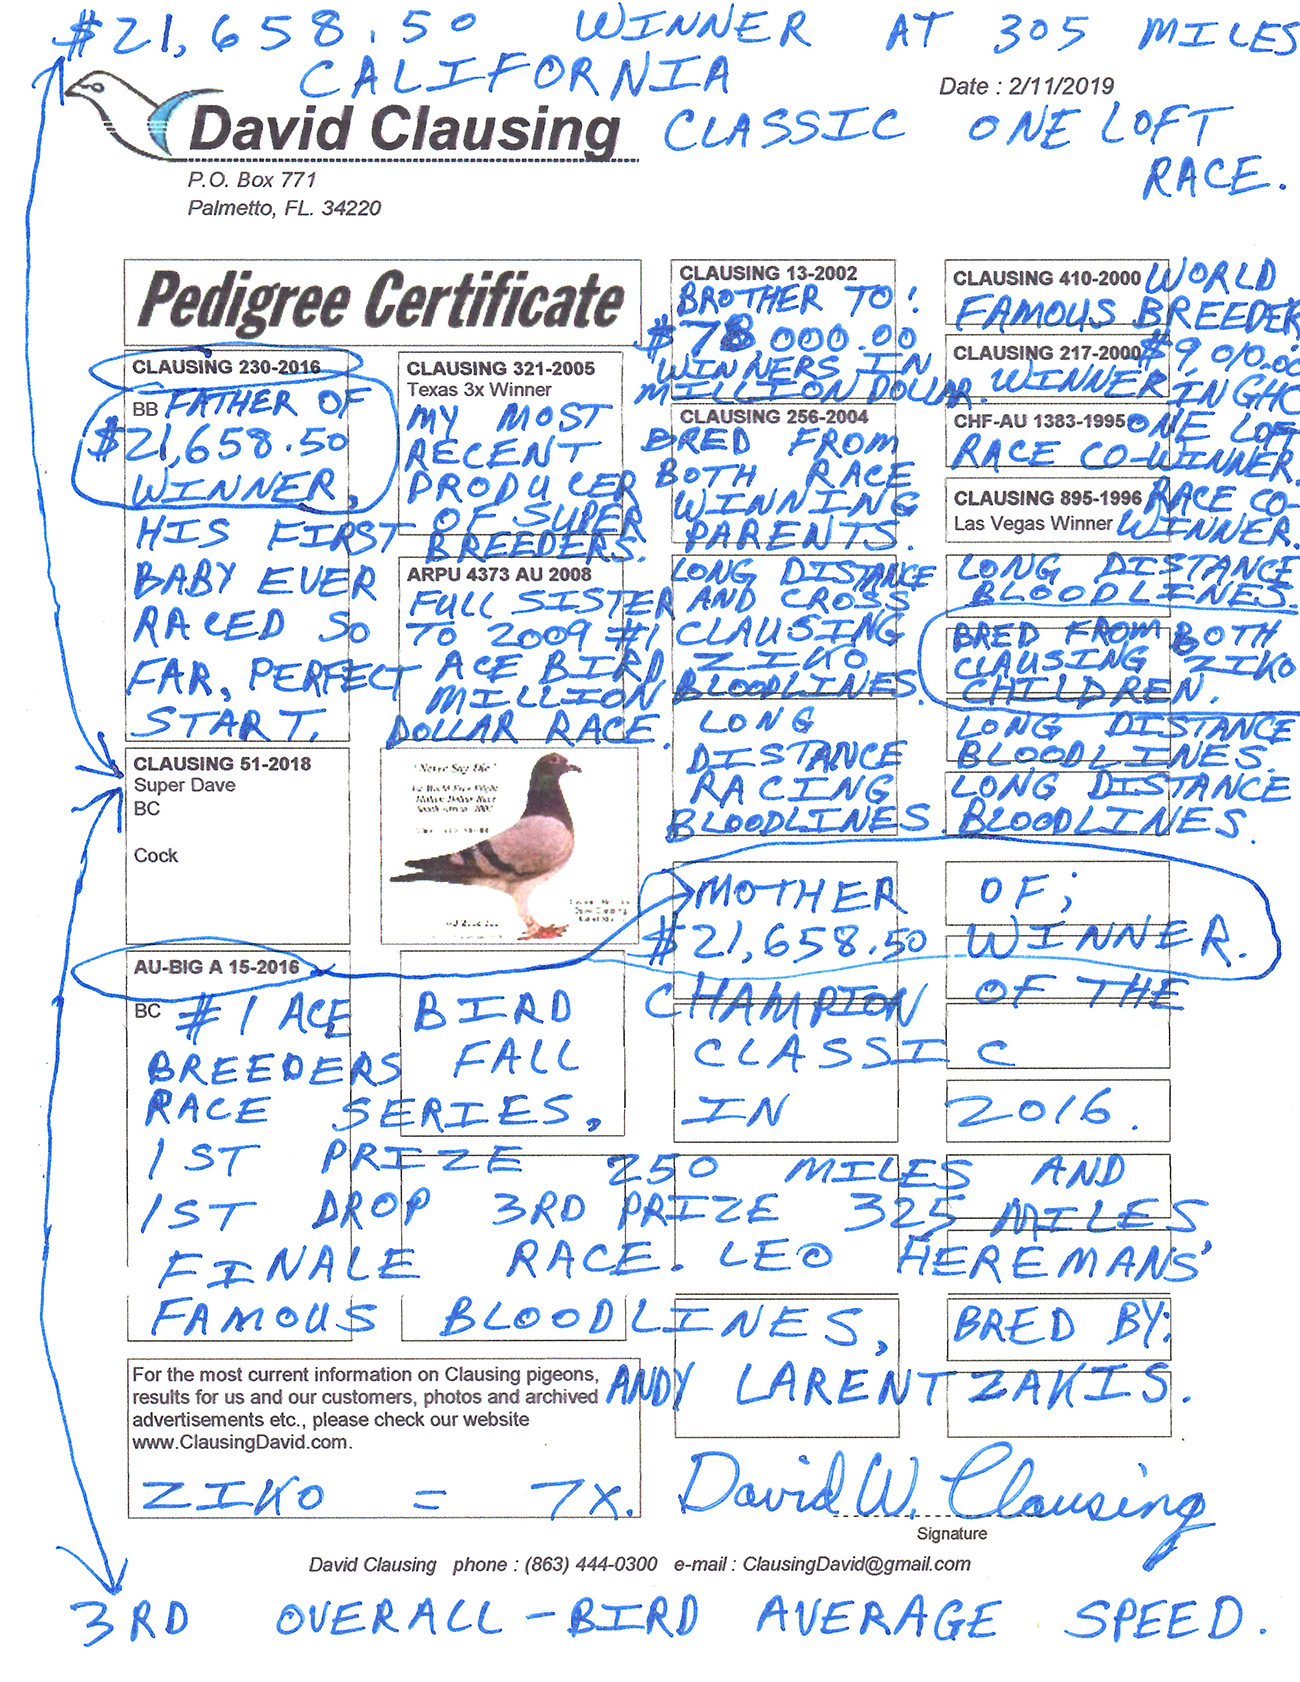 $21,658.50 WINNER AT 305 MILES
CALIFORNIA
Date : 2/11/2019
David Clausing
CLASSIC ONE LOFT
RACE.
P.O. Box 771
Palmetto, FL. 34220
Pedigree Certificate
CLAUSING 230-2016
BB FATHER OF
$21,658.50
WINNER,
HIS FIRST
BABY EVER
RACED SO
FAR, PERFECT
START.
CLAUSING 321-2005
Texas 3x Winner
MY MOST
RECENT
PRODUCER
OF SUPER
BREEDERS.
ARPU 4373 AU 2008
FULL SISTER
TO 2009 #1
ACE BIRD
MILLION
DOLLAR RACE.
CLAUSING 13-2002
BROTHER TO:
$78,000.00
WINNERS IN
MILLION DOLLAR.
CLAUSING 256-2004
BRED FROM
BOTH RACE
WINNING
PARENTS.
LONG DISTANCE
AND CROSS
CLAUSING
ZIKO
BLOODLINES.
LONG
DISTANCE
RACING
BLOODLINES.
CLAUSING 410-2000 WORLD
FAMOUS BREEDER
CLAUSING 217-2000 $9,010.00
WINNER IN GHC
CHF-AU 1383-1995 ONE LOFT
RACE CO-WINNER.
CLAUSING 895-1996 RACE CO-
Las Vegas Winner WINNER.
LONG DISTANCE
BLOODLINES.
BRED FROM BOTH
CLAUSING ZIKO
CHILDREN.
LONG DISTANCE
BLOODLINES.
LONG DISTANCE
BLOODLINES.
CLAUSING 51-2018
Super Dave
BC
Cock
"Never Say Die"
AU-BIG A 15-2016
MOTHER OF;
$21,658.50 WINNER.
BC #1 ACE BIRD CHAMPION OF THE
BREEDERS FALL CLASSIC
RACE SERIES, IN 2016.
1ST PRIZE 250 MILES AND
1ST DROP 3RD PRIZE 325 MILES
FINALE RACE. LEO HEREMANS'
FAMOUS BLOODLINES, BRED BY:
ANDY LARENTZAKIS.
For the most current information on Clausing pigeons,
results for us and our customers, photos and archived
advertisements etc., please check our website
www.ClausingDavid.com.
ZIKO = 7X.
David W. Clausing
Signature
David Clausing phone : (863) 444-0300 e-mail : ClausingDavid@gmail.com
3RD OVERALL-BIRD AVERAGE SPEED.